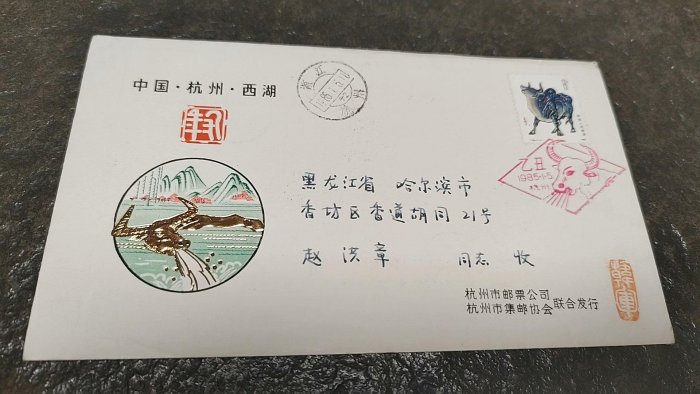 中国·杭州·西湖
浙江
杭州
乙丑
1985·1·5
杭州
黑龙江省 哈尔滨市
香坊区香道胡同21号
赵洪章 同志 收
杭州市邮票公司
杭州市集邮协会
联合发行